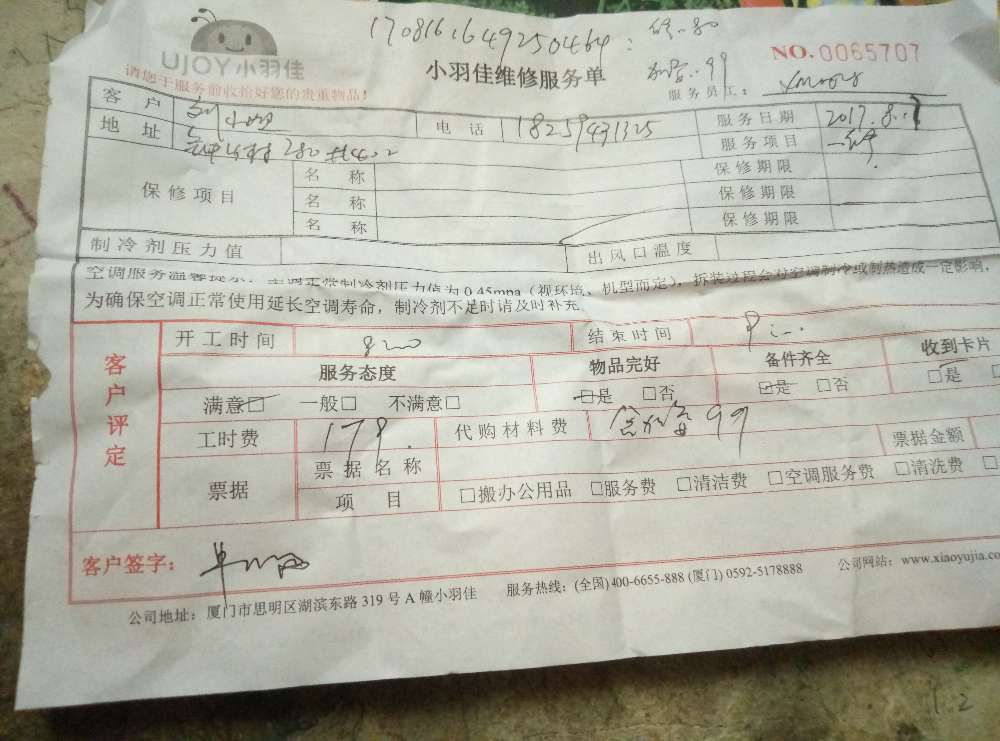 170816164925046​4:
UJOY小羽佳
小羽佳维修服务单
NO.0065707
请您于服务前收拾好您的贵重物品!
99
服务员工:
客户 电话 18259431325 服务日期 2017.8.17
地址 280 402 服务项目
保修项目 名称 保修期限
名称 保修期限
名称 保修期限
制冷剂压力值 出风口温度
空调服务温馨提示:空调正常制冷剂压力值为0.45mpa(视环境、机型而定),拆装过程会对空调制冷或制热造成一定影响,
为确保空调正常使用延长空调寿命,制冷剂不足时请及时补充
客户评定
开工时间 结束时间
服务态度 物品完好 备件齐全 收到卡片
满意□ 一般□ 不满意□ □是 □否 □是 □否 □是
工时费 179. 代购材料费 99
票据 票据名称 票据金额
项目 □搬办公用品 □服务费 □清洁费 □空调服务费 □清洗费
客户签字:
公司地址:厦门市思明区湖滨东路319号A幢小羽佳 服务热线:(全国)400-6655-888(厦门)0592-5178888 公司网站:www.xiaoyujia.co